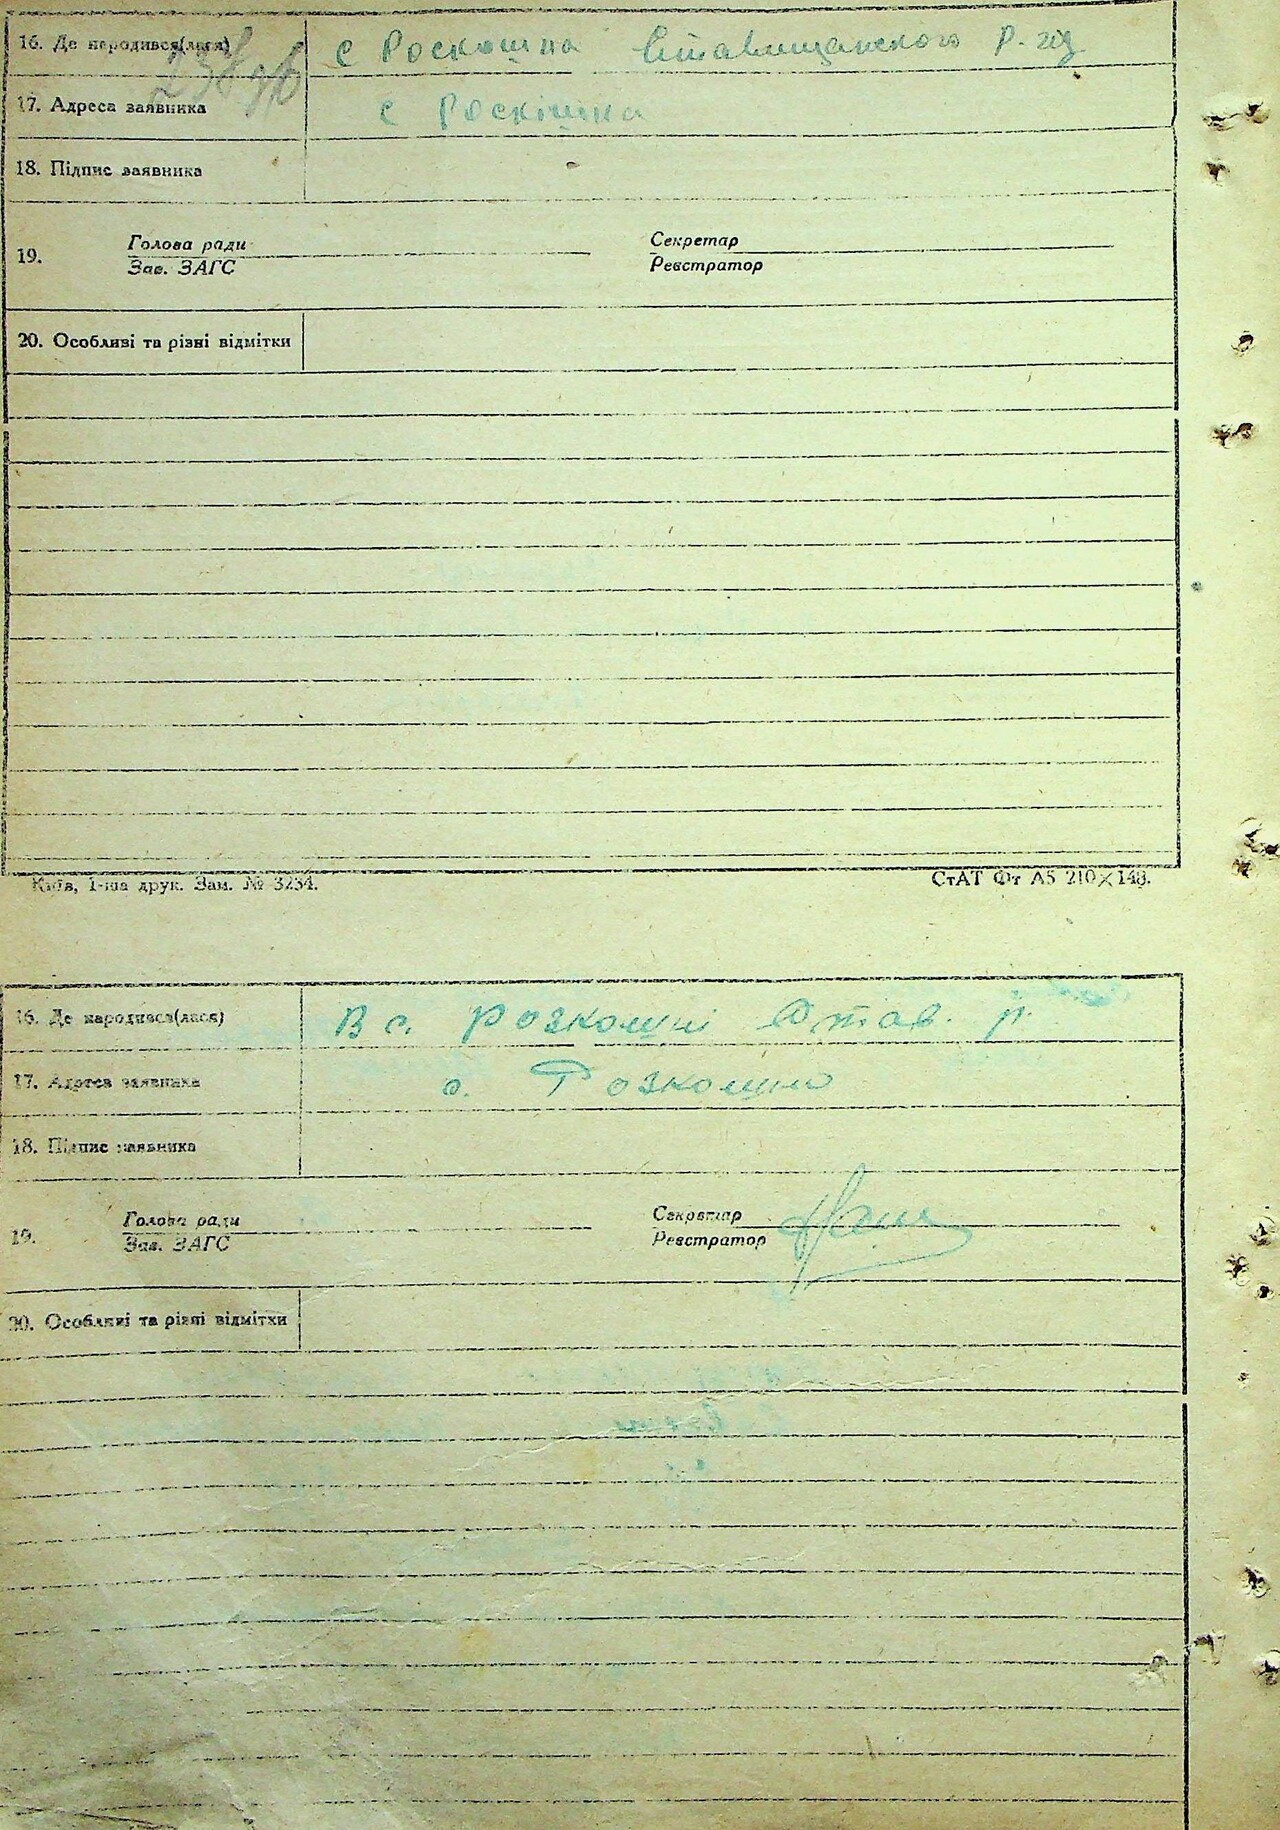 16. Де народився(лася) с Роскошна Ставищанского р-ну
17. Адреса заявника с Роскішна
18. Підпис заявника
19. Голова ради Секретар
Зав. ЗАГС Реєстратор
20. Особливі та різні відмітки
Київ, 1-ша друк. Зам. № 3234. СтАТ Фт А5 210×148.
16. Де народився(лася) В с. Розкошні Став. р.
17. Адреса заявника с. Розкошно
18. Підпис заявника
19. Голова ради Секретар
Зав. ЗАГС Реєстратор
20. Особливі та різні відмітки